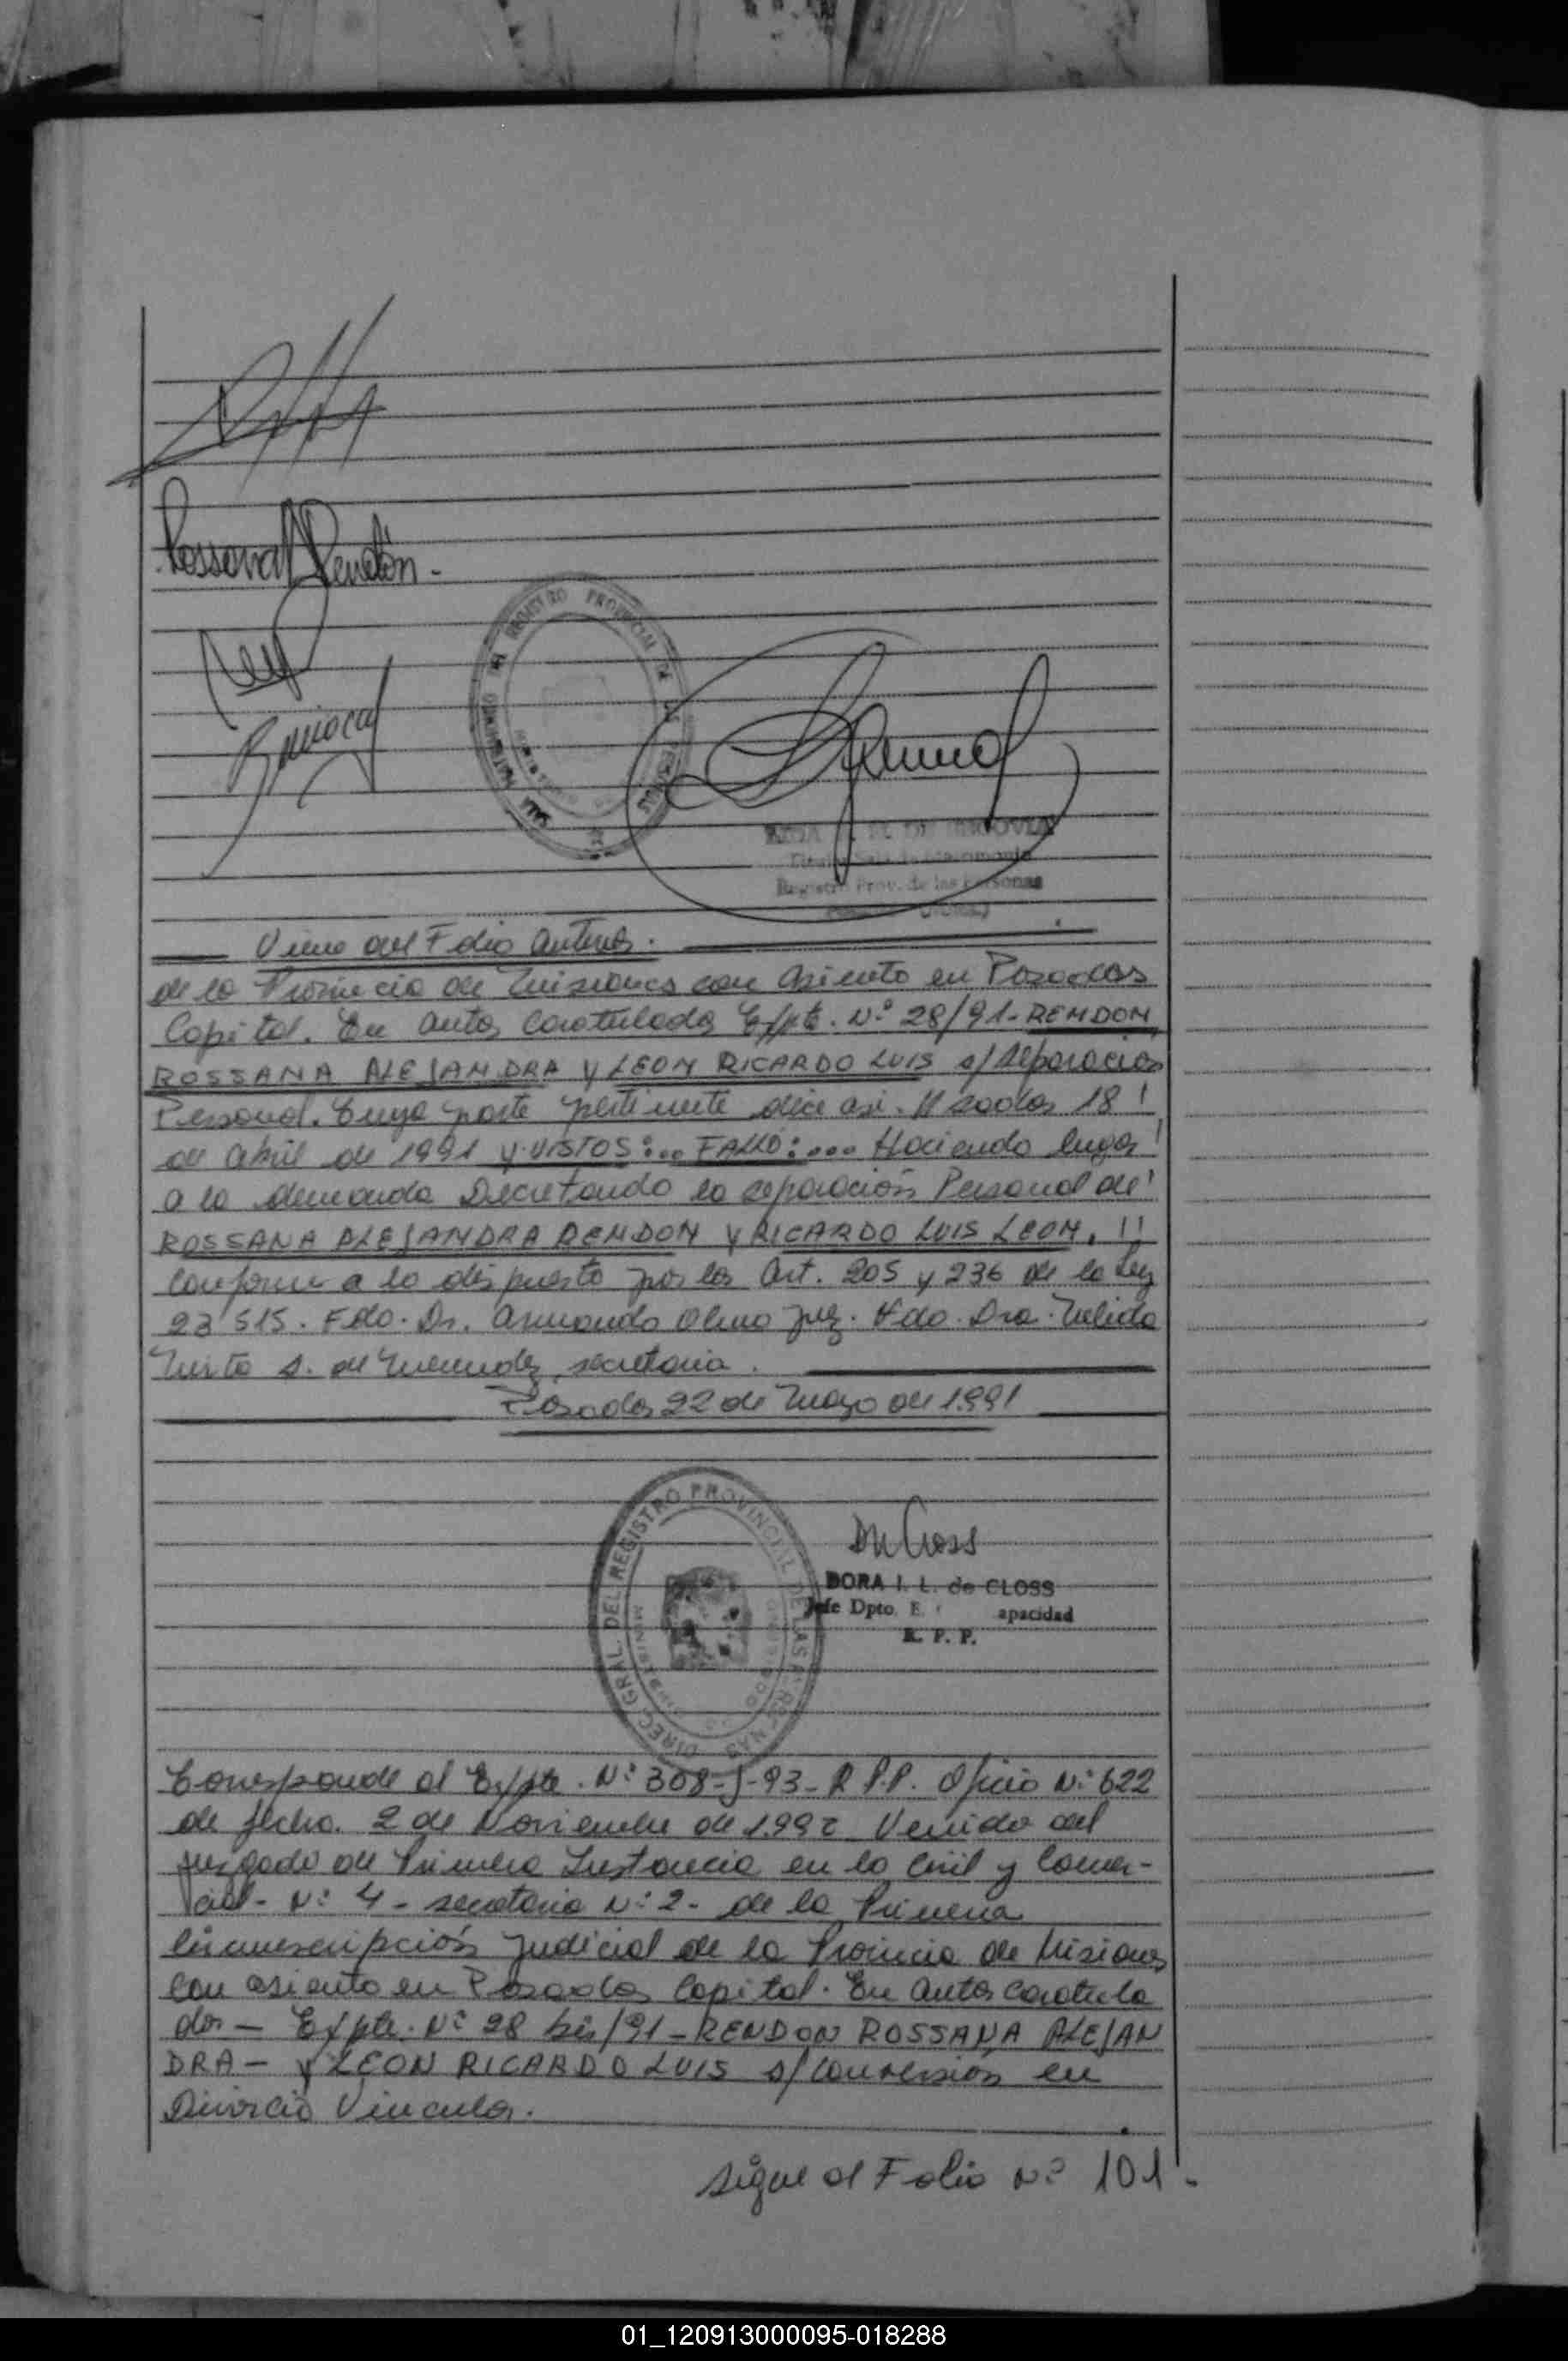 Rossana Rendón.-
REGISTRO PROVINCIAL DE LAS PERSONAS
SALA MATRIMONIO DEL
DE SEGOVIA
Registro Prov. de las Personas
Viene del Folio anterior.
de la Provincia de Misiones con asiento en Posadas
Capital. En autos Caratulados Expte. N° 28/91- RENDON
ROSSANA ALEJANDRA y LEON RICARDO LUIS s/ Separación
Personal. Cuya parte pertinente dice así. Posadas 18
de abril de 1991 y VISTOS:... FALLO:... Haciendo lugar
a la demanda Decretando la separación Personal de
ROSSANA ALEJANDRA RENDON y RICARDO LUIS LEON. !!
Conforme a lo dispuesto por los Art. 205 y 236 de la Ley
23515. Fdo. Dr. Armando Olmo Juez. Fdo. Dra.
de secretaria.
Posadas 22 de Mayo de 1991
DIREC. GRAL. DEL REGISTRO PROVINCIAL DE LAS PERSONAS
MINISTERIO DE GOBIERNO
DORA I. L. de CLOSS
Jefe Dpto. E. apacidad
R. P. P.
Corresponde al Expte. N° 308-J-93- R.P.P. Oficio N° 622
de fecha. 2 de Noviembre de 1992 Venido del
juzgado de Primera Instancia en lo Civil y Comer-
cial- N° 4 - secretaria N° 2- de la Primera
Circunscripción Judicial de la Provincia de Misiones
con asiento en Posadas Capital. En autos Caratula
dos - Expte. N° 28 bis/91 - RENDON ROSSANA ALEJAN
DRA - y LEON RICARDO LUIS s/ Conversión en
Divorcio Vincular.
sigue al Folio N° 101.-
01_120913000095-018288